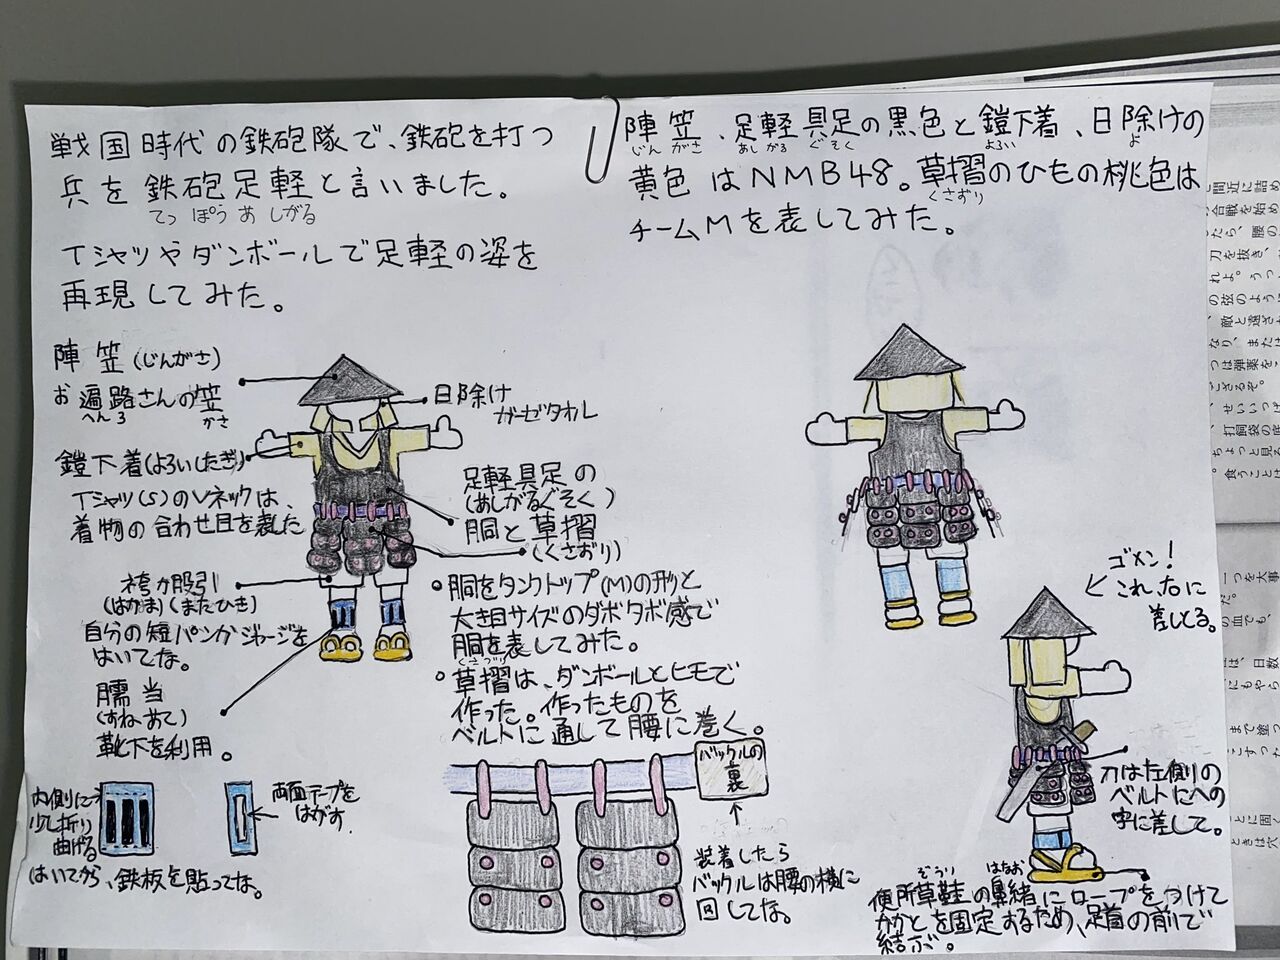 戦国時代の鉄砲隊で、鉄砲を打つ
兵を鉄砲足軽と言いました。
てっぽうあしがる
Tシャツやダンボールで足軽の姿を
再現してみた。
陣笠、足軽具足の黒色と鎧下着、日除けの
じんがさ あしがるぐそく よろい よ
黄色はNMB48。草摺のひもの桃色は
くさずり
チームMを表してみた。
陣笠(じんがさ)
お遍路さんの笠
へんろ かさ
日除け
ガーゼタオル
鎧下着(よろいしたぎ)
Tシャツ(S)のVネックは、
着物の合わせ目を表した
足軽具足の
(あしがるぐそく)
胴と草摺
(くさずり)
袴か股引
(はかま)(またひき)
自分の短パンかジャージを
はいてな。
臑当
(すねあて)
靴下を利用。
。胴をタンクトップ(M)の形と
大き目サイズのダボダボ感で
胴を表してみた。
くさずり
。草摺は、ダンボールとヒモで
作った。作ったものを
ベルトに通して腰に巻く。
内側に
少し折り
曲げる
両面テープを
はがす
はいてから、鉄板を貼ってな。
バックルの
裏
装着したら
バックルは腰の横に
回してな。
ゴメン!
これ、右に
差しとる。
刀は左側の
ベルトにへの
字に差して。
ぞうり はなお
便所草鞋の鼻緒にロープをつけて
かかとを固定するため、足首の前で
結ぶ。
間近に詰め
合戦を始め
たら、腰の
刀を抜き、
れよ。うっ
の弦のように
敵と遠ざ
なり、または
つは弾薬を
ござるぞ。
、せいいっぱ
、打飼袋の底
ちょっと見る
。食うことは
一つを大事
だ。
の血でも、
は、日数
にもやら
まで塗っ
こすった
とに固
ときは穴